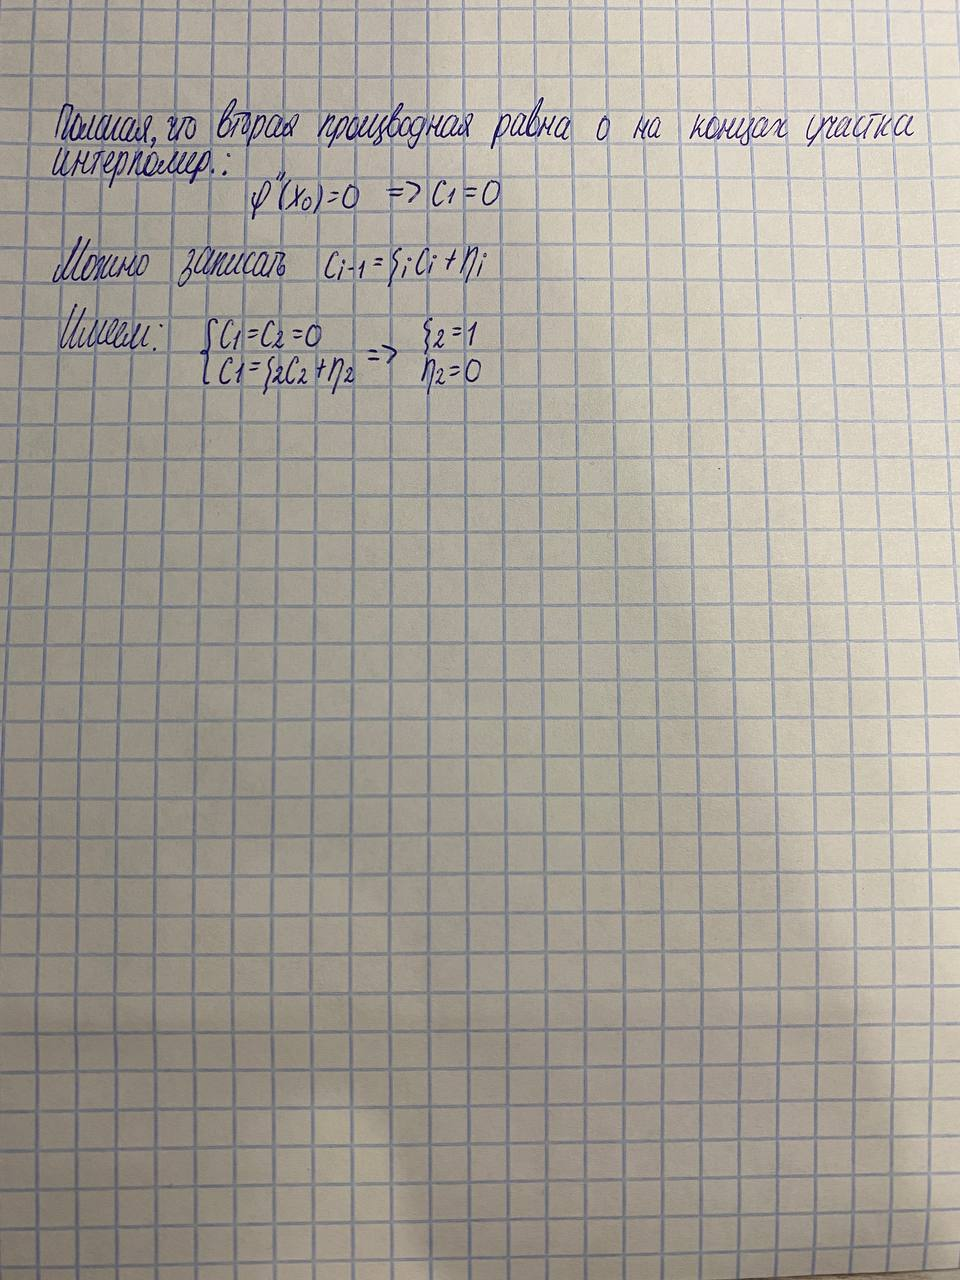 Полагая, что вторая производная равна 0 на концах участка
интерполир.:
φ''(x₀)=0 => C₁=0
Можно записать Cᵢ₋₁=ξᵢCᵢ+ηᵢ
Имеем: {C₁=C₂=0 => ξ₂=1
C₁=ξ₂C₂+η₂ η₂=0